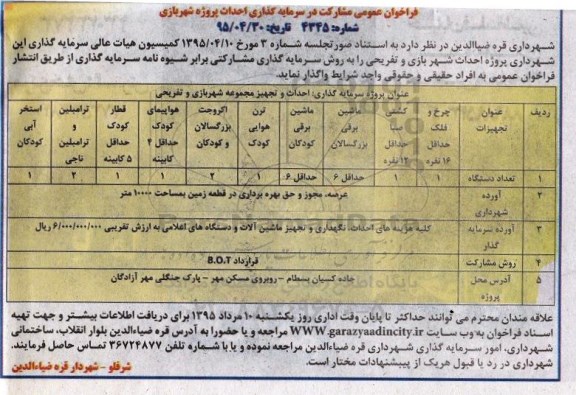 فراخوان عمومی مشارکت در سرمایه گذاری احداث پروژه شهربازی
شماره: ۴۳۴۵ تاریخ: ۹۵/۰۴/۳۰
شهرداری قره ضیاالدین در نظر دارد به استناد صورتجلسه شماره ۳ مورخ ۱۳۹۵/۰۴/۱۰ کمیسیون هیات عالی سرمایه گذاری این
شهرداری پروژه احداث شهر بازی و تفریحی را به روش سرمایه گذاری مشارکتی برابر شیوه نامه سرمایه گذاری از طریق انتشار
فراخوان عمومی به افراد حقیقی و حقوقی واجد شرایط واگذار نماید.
ردیف عنوان پروژه سرمایه گذاری: احداث و تجهیز مجموعه شهربازی و تفریحی
عنوان تجهیزات
چرخ و فلک حداقل ۱۶ نفره
کشتی صبا حداقل ۱۲ نفره
ماشین برقی بزرگسالان
ماشین برقی کودکان
ترن هوایی
اکروجت بزرگسالان و کودکان
هواپیمای کودک حداقل ۴ کابینه
قطار کودک حداقل ۵ کابینه
ترامبلین و ترامبلین ناجی
استخر آبی کودکان
۱ تعداد دستگاه ۱ ۱ حداقل ۶ حداقل ۶ ۱ ۲ ۱ ۱ ۲ ۱
۲ آورده شهرداری عرصه، مجوز و حق بهره برداری در قطعه زمین بمساحت ۱۰۰۰۰ متر
۳ آورده سرمایه گذار کلیه هزینه های احداث، نگهداری و تجهیز ماشین آلات و دستگاه های اعلامی به ارزش تقریبی ۶/۰۰۰/۰۰۰/۰۰۰ ریال
۴ روش مشارکت قرارداد B.O.T
۵ آدرس محل پروژه جاده کسیان بسطام - روبروی مسکن مهر - پارک جنگلی مهر آزادگان
علاقه مندان محترم می توانند حداکثر تا پایان وقت اداری روز یکشنبه ۱۰ مرداد ۱۳۹۵ برای دریافت اطلاعات بیشتر و جهت تهیه
اسناد فراخوان به وب سایت WWW.garazyaadincity.ir مراجعه و یا حضورا به آدرس قره ضیاءالدین بلوار انقلاب، ساختمانی
شهرداری، امور سرمایه گذاری شهرداری قره ضیاءالدین مراجعه نموده و یا با شماره تلفن ۳۶۷۲۴۸۷۷ تماس حاصل فرمایند.
شهرداری در رد یا قبول هریک از پیشنهادات مختار است.
شرفلو - شهردار قره ضیاءالدین